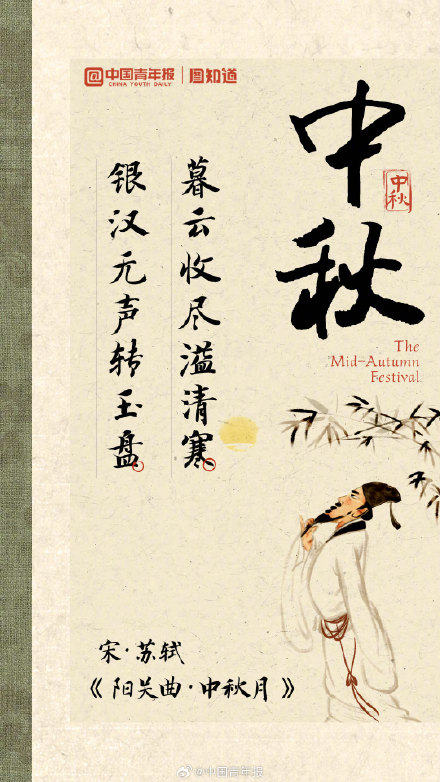 中国青年报 图知道
CHINA YOUTH DAILY
中秋
中秋
The
Mid-Autumn
Festival
暮云收尽溢清寒
银汉无声转玉盘
宋·苏轼
《阳关曲·中秋月》
@中国青年报